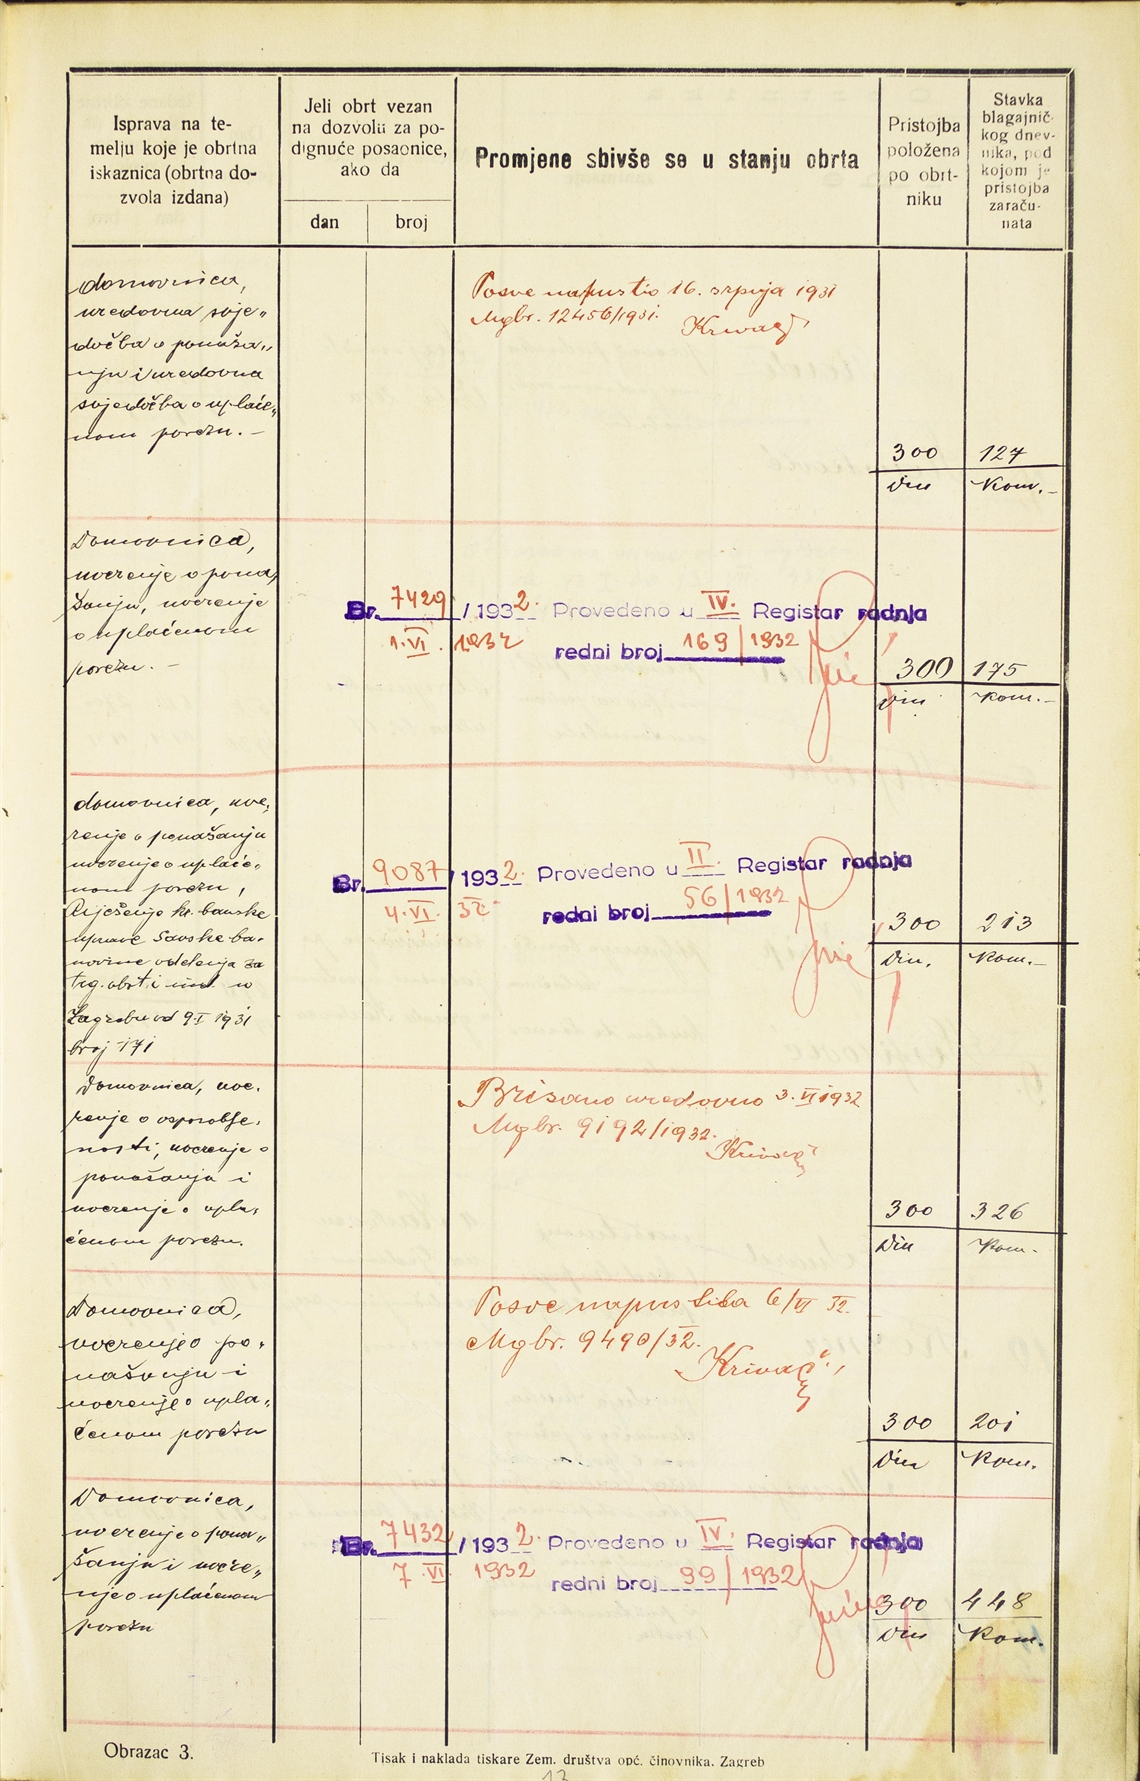 Isprava na te-
melju koje je obrtna
iskaznica (obrtna do-
zvola izdana)
Jeli obrt vezan
na dozvolu za po-
dignuće posaonice,
ako da
dan
broj
Promjene sbivše se u stanju obrta
Pristojba
položena
po obrt-
niku
Stavka
blagajnič-
kog dnev-
nika, pod
kojom je
pristojba
zaraču-
nata
domovnica,
uredovna svje„
dočba o ponaša„
nju i uredovna
svjedočba o uplaće„
nom porezu. –
Posve napustio 16. srpnja 1931
Mgbr. 12456/1931.
300
Din
127
Kom. –
Domovnica,
uverenje o pona„
šanju, uverenje
o uplaćenom
porezu. –
Br. 7429 / 1932. Provedeno u IV. Registar radnja
1. VI. 1932 redni broj 169/1932
300
Din
175
Kom. –
domovnica, uve„
renje o ponašanju
uverenje o uplaće„
nom porezu,
Riješenje kr. banske
uprave Savske ba-
novine odelenja za
trg. obrt i ind. u
Zagrebu od 9 I 1931
broj 171
Br. 9087 / 1932. Provedeno u II. Registar radnja
4. VI. 32 redni broj 56/1932
300
Din.
213
Kom. –
Domovnica, uve-
renje o osposoblje-
nosti, uverenje o
ponašanju i
uverenje o upla„
ćenom porezu.
Brisano uredovno 3. VI 1932
Mgbr. 9192/1932.
300
Din
326
Kom.
Domovnica,
uverenje o po„
našanju i
uverenje o upla„
ćenom porezu
Posve napustila 6/VI 32.
Mgbr. 9490/32.
Krivač
300
Din
201
Kom.
Domovnica,
uverenje o pona„
šanju i uvere„
nje o uplaćenom
porezu
Br. 7432 / 1932. Provedeno u IV. Registar radnja
7 VI 1932 redni broj 99/1932
300
Din
448
Kom.
Obrazac 3.
Tisak i naklada tiskare Zem. društva opć. činovnika. Zagreb